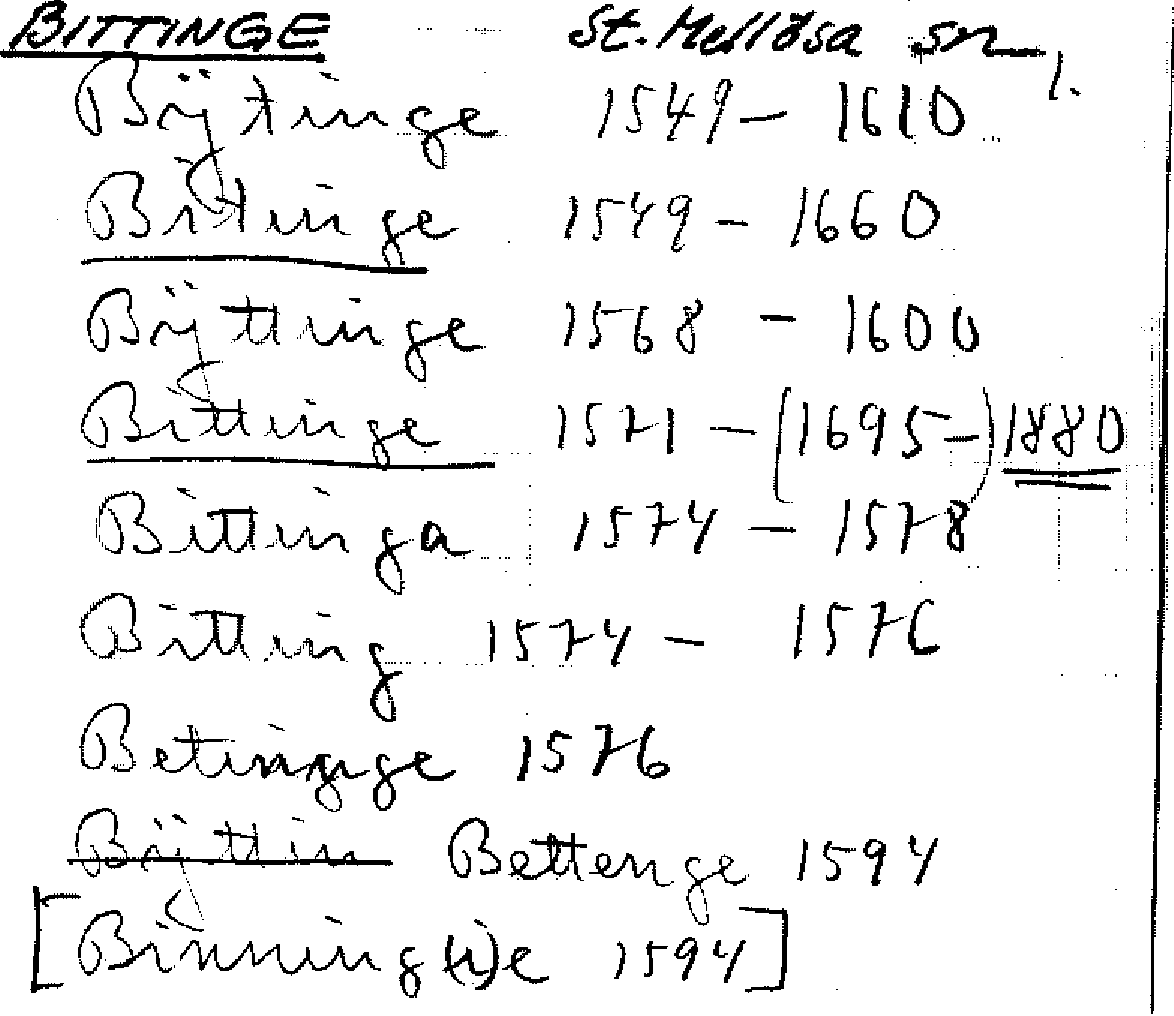 BITTINGE St. Mellösa sn 1.
Bÿtinge 1549 – 1610
Bitinge 1549 – 1660
Bÿttinge 1568 – 1600
Bittinge 1571 – (1695–) 1880
Bittinga 1574 – 1578
Bitting 1574 – 1576
Betingge 1576
Bÿttin Bettenge 1594
[Binning(i)e 1594]